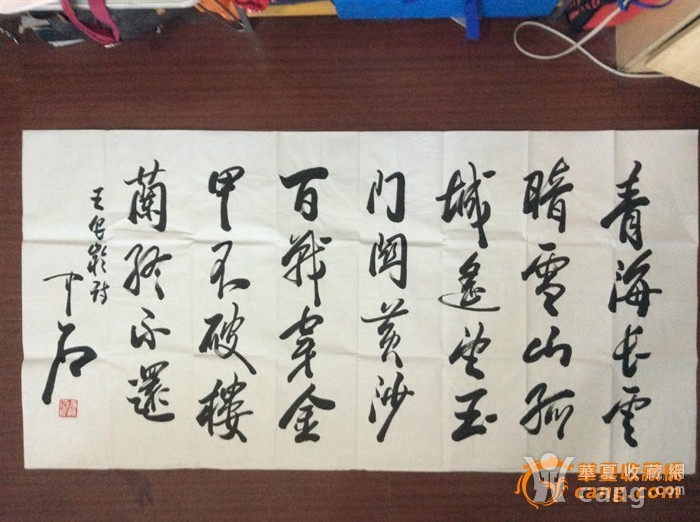 青海長雲
暗雪山孤
城遙望玉
門關黃沙
百戰穿金
甲不破樓
蘭終不還
王昌齡詩
中石
華夏收藏網
cang.com